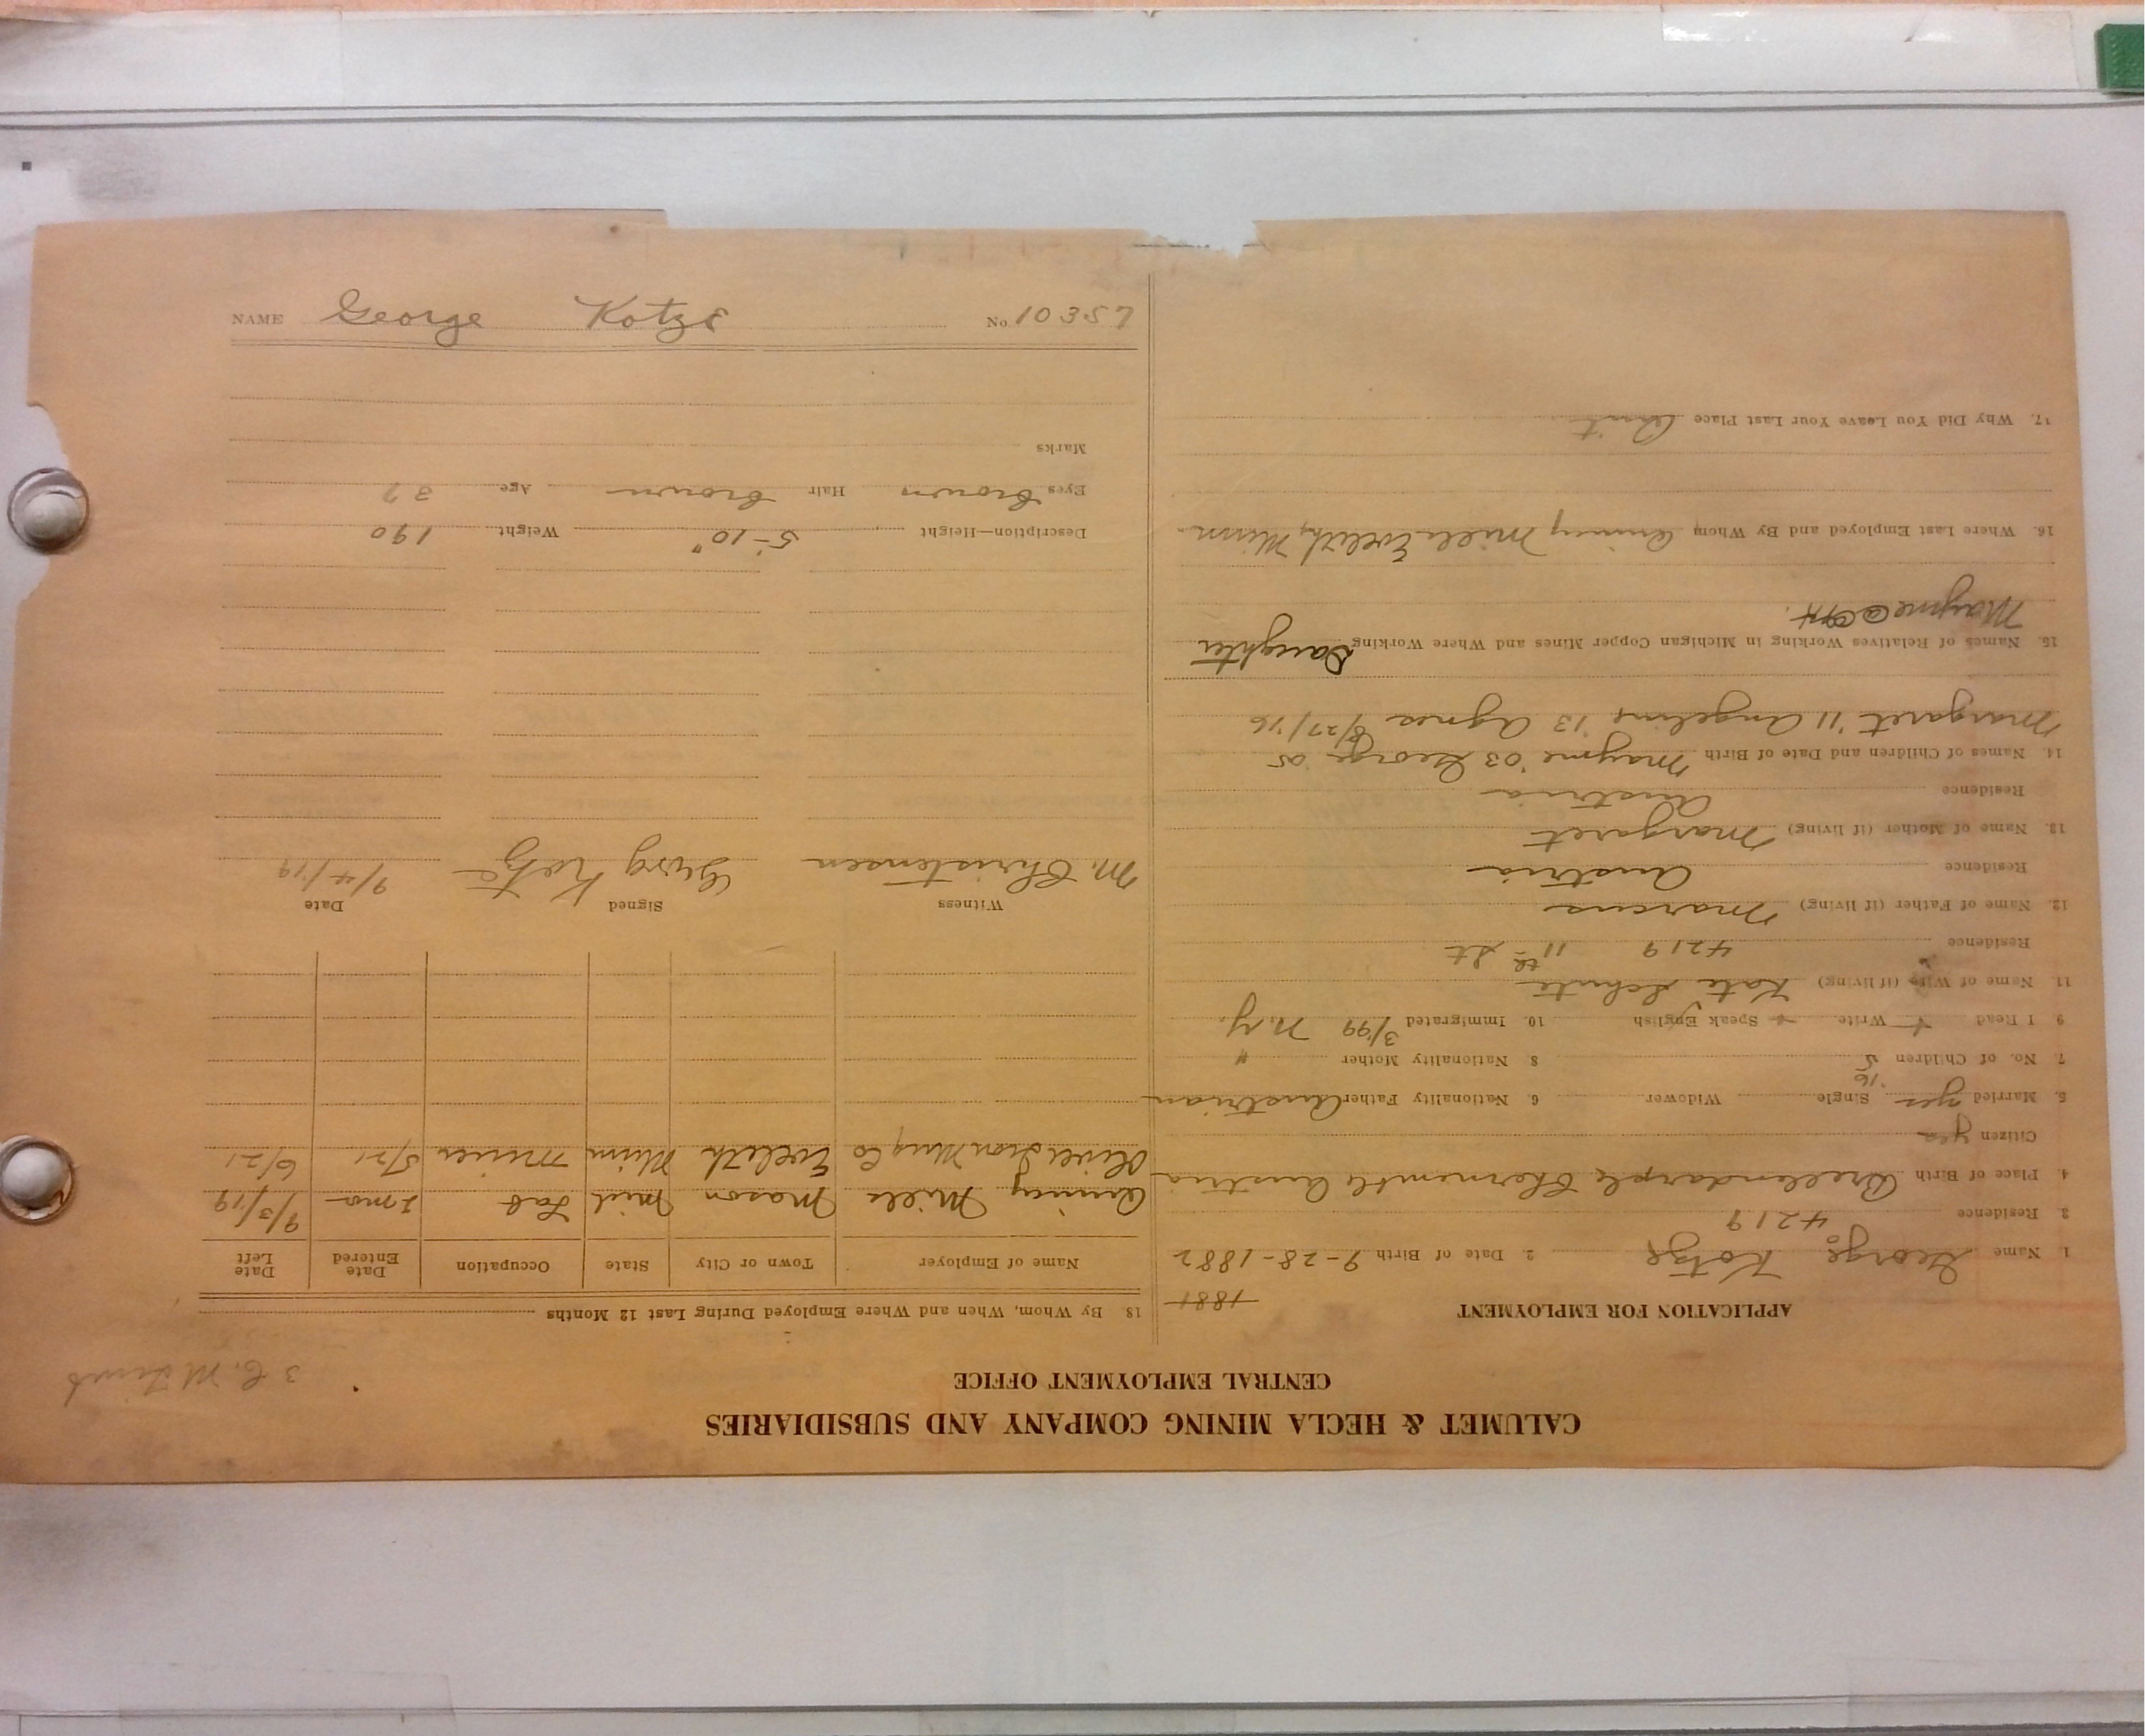 CALUMET & HECLA MINING COMPANY AND SUBSIDIARIES
CENTRAL EMPLOYMENT OFFICE
APPLICATION FOR EMPLOYMENT
1881
1. Name George Kotze 2. Date of Birth 9-28-1882
3. Residence 4219
4. Place of Birth Austria
Citizen yes
5. Married yes '16 Single Widower 6. Nationality Father Austrian
7. No. of Children 5 8 Nationality Mother "
9 I Read + Write + Speak English 10. Immigrated 3/99 N.Y.
11. Name of Wife (if living) Kate Schute
Residence 4219 11th St
12. Name of Father (if living) Marcus
Residence Austria
13. Name of Mother (if living) Margaret
Residence Austria
14. Names of Children and Date of Birth Mayme '03 George '05
Margaret '11 Angeline '13 Agnes 8/27/16
15. Names of Relatives Working in Michigan Copper Mines and Where Working Daughter
Mayme @
16. Where Last Employed and By Whom Quincy Mill Eveleth, Minn.
17. Why Did You Leave Your Last Place Quit
18. By Whom, When and Where Employed During Last 12 Months
Name of Employer Town or City State Occupation Date Entered Date Left
Quincy Mill Mason Mich Lab 2 mo 9/3/19
Oliver Iron Mng Co Eveleth Minn Miner 5/21 6/21
Witness Signed Date
M. Christensen Georg Kotze 9/4/19
Description—Height 5'-10" Weight 190
Eyes brown Hair brown Age 37
Marks
NAME George Kotze No. 10357